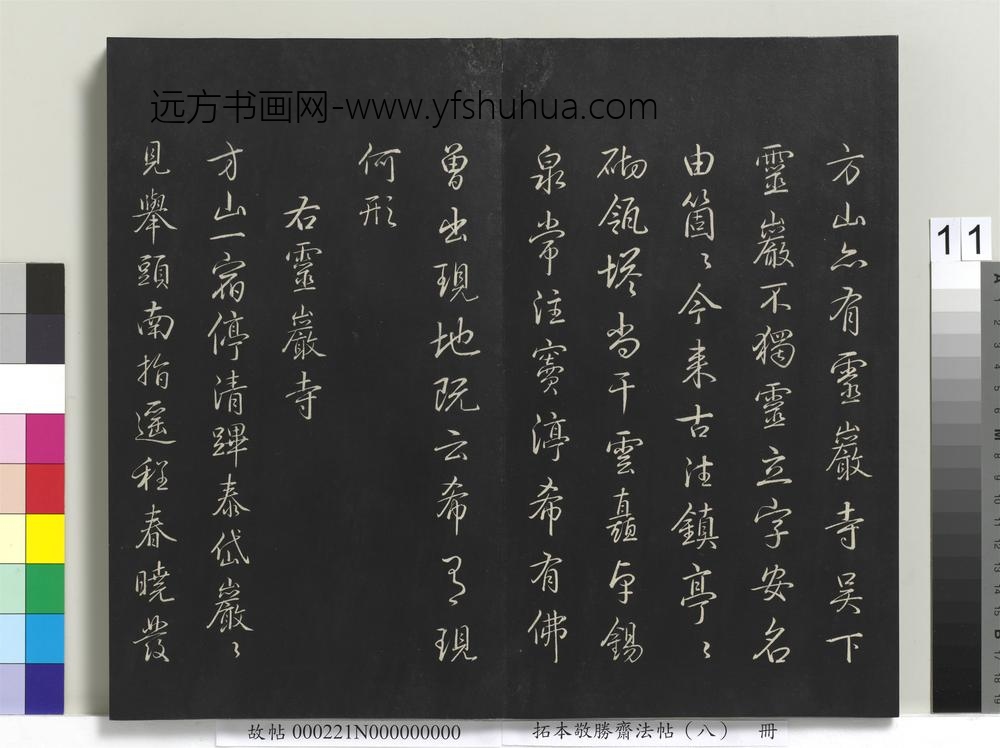 远方书画网-www.yfshuhua.com
方山亦有靈巖寺吳下
靈巖不獨靈立字安名
由箇〻今来古往鎮亭〻
砌瓴塔尚干雲矗卓錫
泉常注竇渟希有佛
曽出現地既云希有現
何形
右靈巖寺
方山一宿停清蹕泰岱巖〻
見舉頭南指遥程春曉發
11
故帖 000221N000000000
拓本敬勝齋法帖（八） 冊